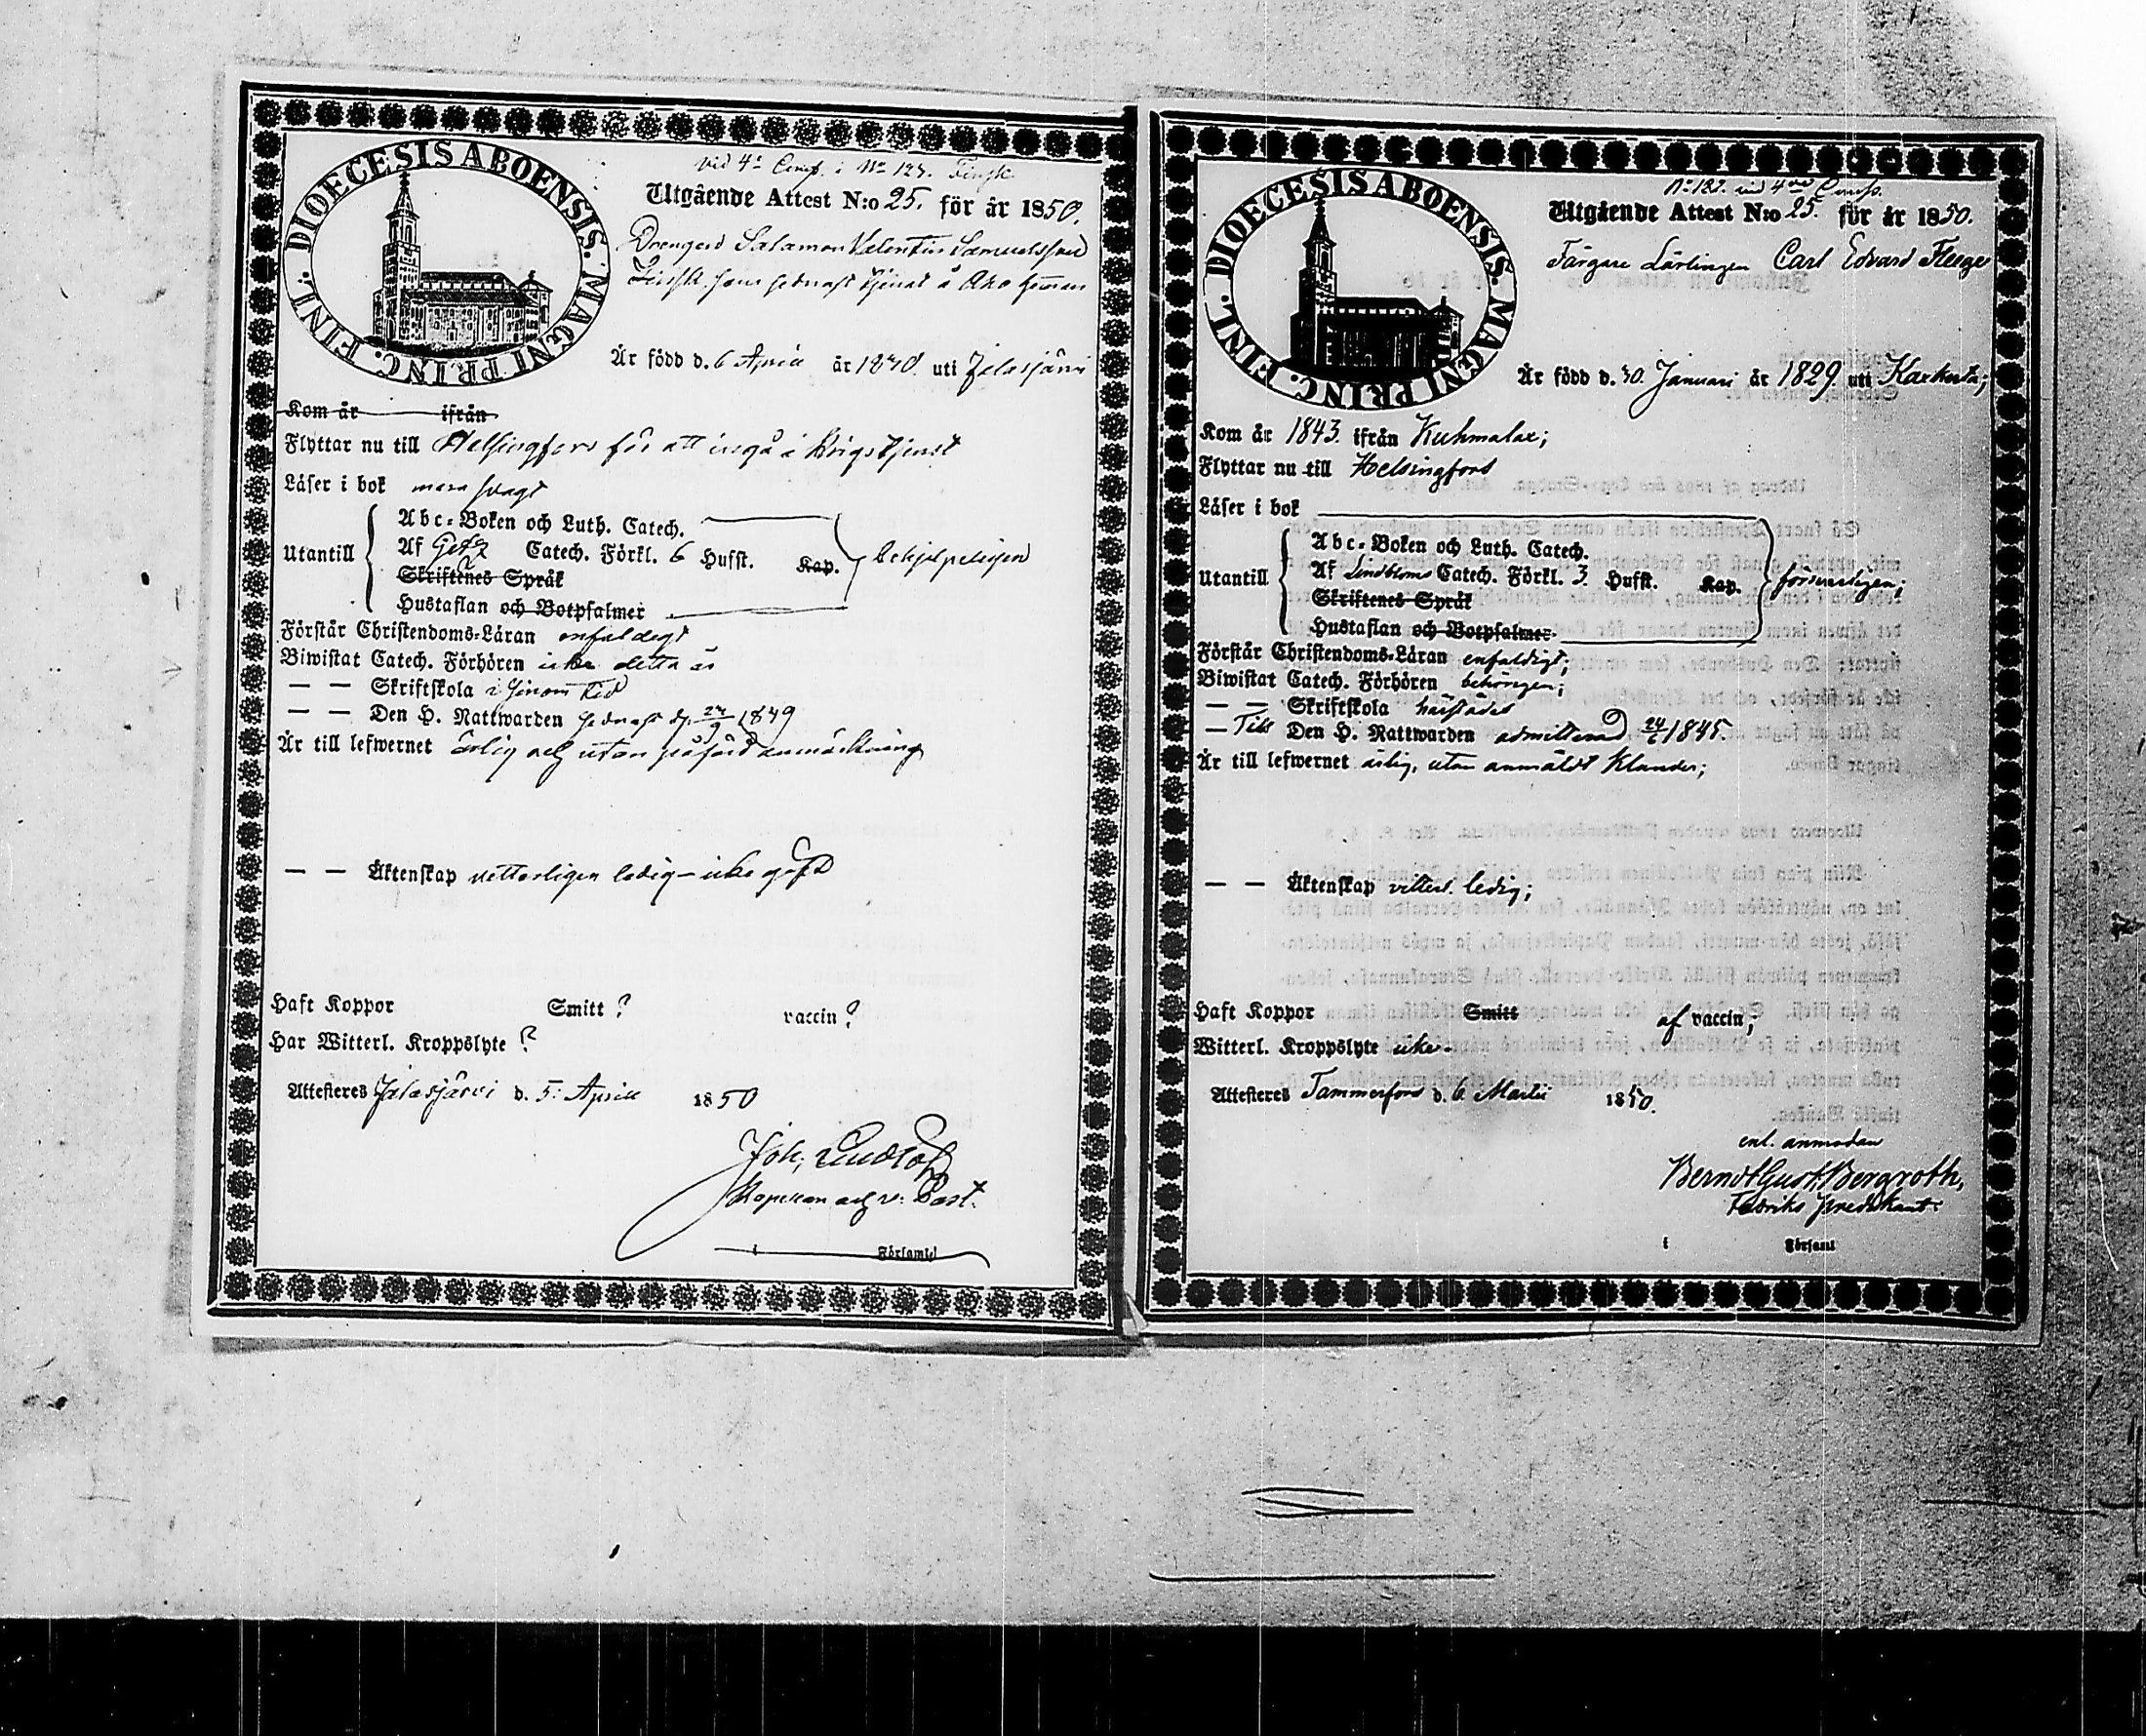 DIOECESIS ABOENSIS. MAGNI PRINC. FINL.
vid 4:e Comp. i No 127. Finsk
Utgående Attest N:o 25. för år 1850.
Drengen Salamon Valentin Samuelsson
som sednast tjenat å Ako hemman
Är född d. 6 April år uti Jalasjärvi
Kom år ifrån
Flyttar nu till Helsingfors för att ingå i krigstjenst
Läser i bok svagt
Abc-Boken och Luth. Catech.
Utantill Af Catech. Förkl. 6 Hufst. Kap. behjelpeligen
Skriftenes Språk
Hustaflan och Botpsalmer
Förstår Christendoms-Läran enfaldigt
Biwistat Catech. Förhören icke detta år
— — Skriftskola i sinom tid
— — Den H. Nattwarden sednast d. 1849
Är till lefwernet ärlig och utan anmärkning
— — Äktenskap vetterligen ledig – icke gift
Haft Koppor Smitt ? vaccin ?
Har Witterl. Kroppslyte ?
Attesteres Jalasjärvi d. 5: April 1850
Joh.
Kapellan och v. Past.
i Församl
DIOECESIS ABOENSIS. MAGNI PRINC. FINL.
No 127. vid 4de Comp.
Utgående Attest N:o 25. för år 1850.
Färgare Lärlingen Carl Edvard Flege
Är född d. 30. Januari år 1829. uti Karkku;
Kom år 1843. ifrån Kuhmalax;
Flyttar nu till Helsingfors
Läser i bok
Abc-Boken och Luth. Catech.
Utantill Af Lindbloms Catech. Förkl. 3. Hufst. Kap. försvarligen;
Skriftenes Språk
Hustaflan och Botpsalmer.
Förstår Christendoms-Läran enfaldigt;
Biwistat Catech. Förhören behörigen;
— — Skriftskola härstädes
— Till Den H. Nattwarden admitterad 24/6 1845.
Är till lefwernet ärlig, utan anmäldt klander;
— — Äktenskap vitterl. ledig;
Haft Koppor Smitt af vaccin;
Witterl. Kroppslyte icke.
Attesteres Tammerfors d. 6 Martii 1850.
enl. anmodan
Berndt Gust. Bergroth,
Fabriks predikant.
i Församl